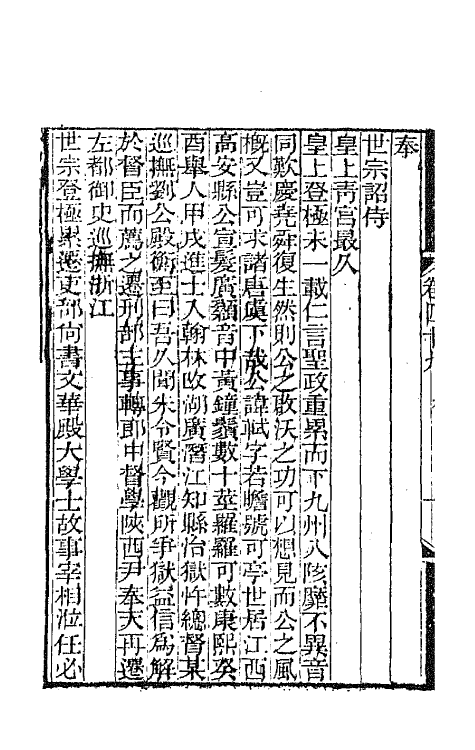 奉
世宗詔侍
皇上靑宮最久
皇上登極未一載仁言聖政重累而下九州八陔靡不異音
同歎慶堯舜復生然則公之啟沃之功可以想見而公之風
概又豈可求諸唐虞下哉公諱軾字若瞻號可亭世居江西
高安縣公宣髮廣顙音中黃鐘鬚數十莖羅羅可數康熙癸
酉舉人甲戌進士入翰林改湖廣潛江知縣治獄忤總督某
巡撫劉公殿衡至曰吾久聞朱令賢今觀所爭獄益信爲解
於督臣而薦之遷刑部主事轉郎中督學陝西尹奉天再遷
左都御史巡撫浙江
世宗登極累遷吏部尙書文華殿大學士故事宰相涖任必
卷四十九